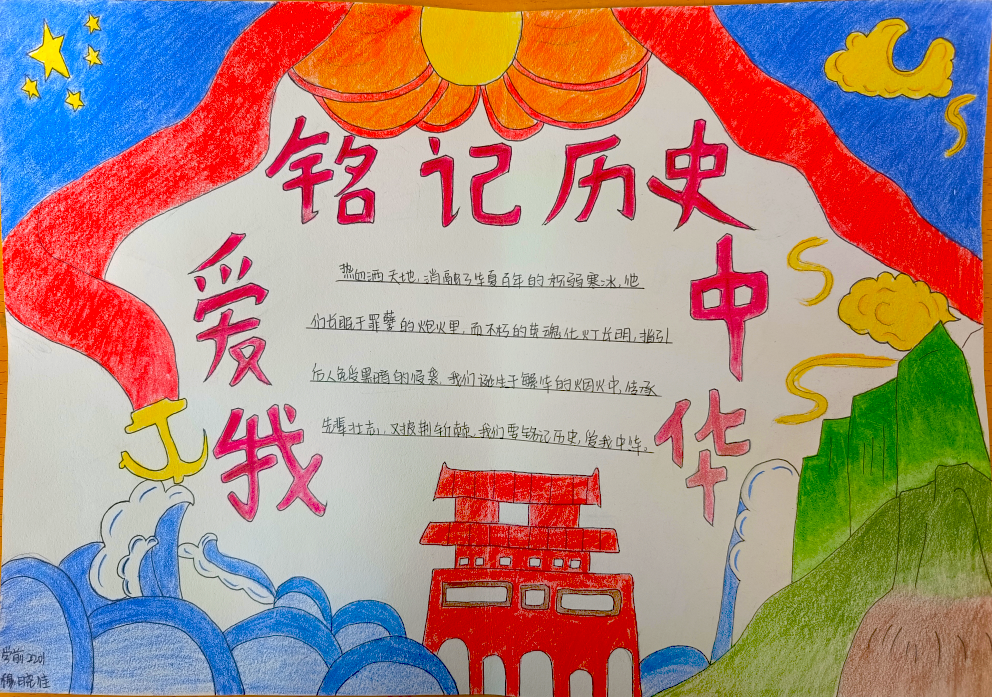 铭记历史
爱我
中华
热血洒天地,消融了华夏百年的积弱寒冰,他
们长眠于罪孽的炮火里,而不朽的英魂化灯长明,指引
后人免受黑暗的侵袭。我们诞生于繁华的烟火中,传承
先辈壮志,又披荆斩棘。我们要铭记历史,爱我中华。
学前2201
杨晓佳